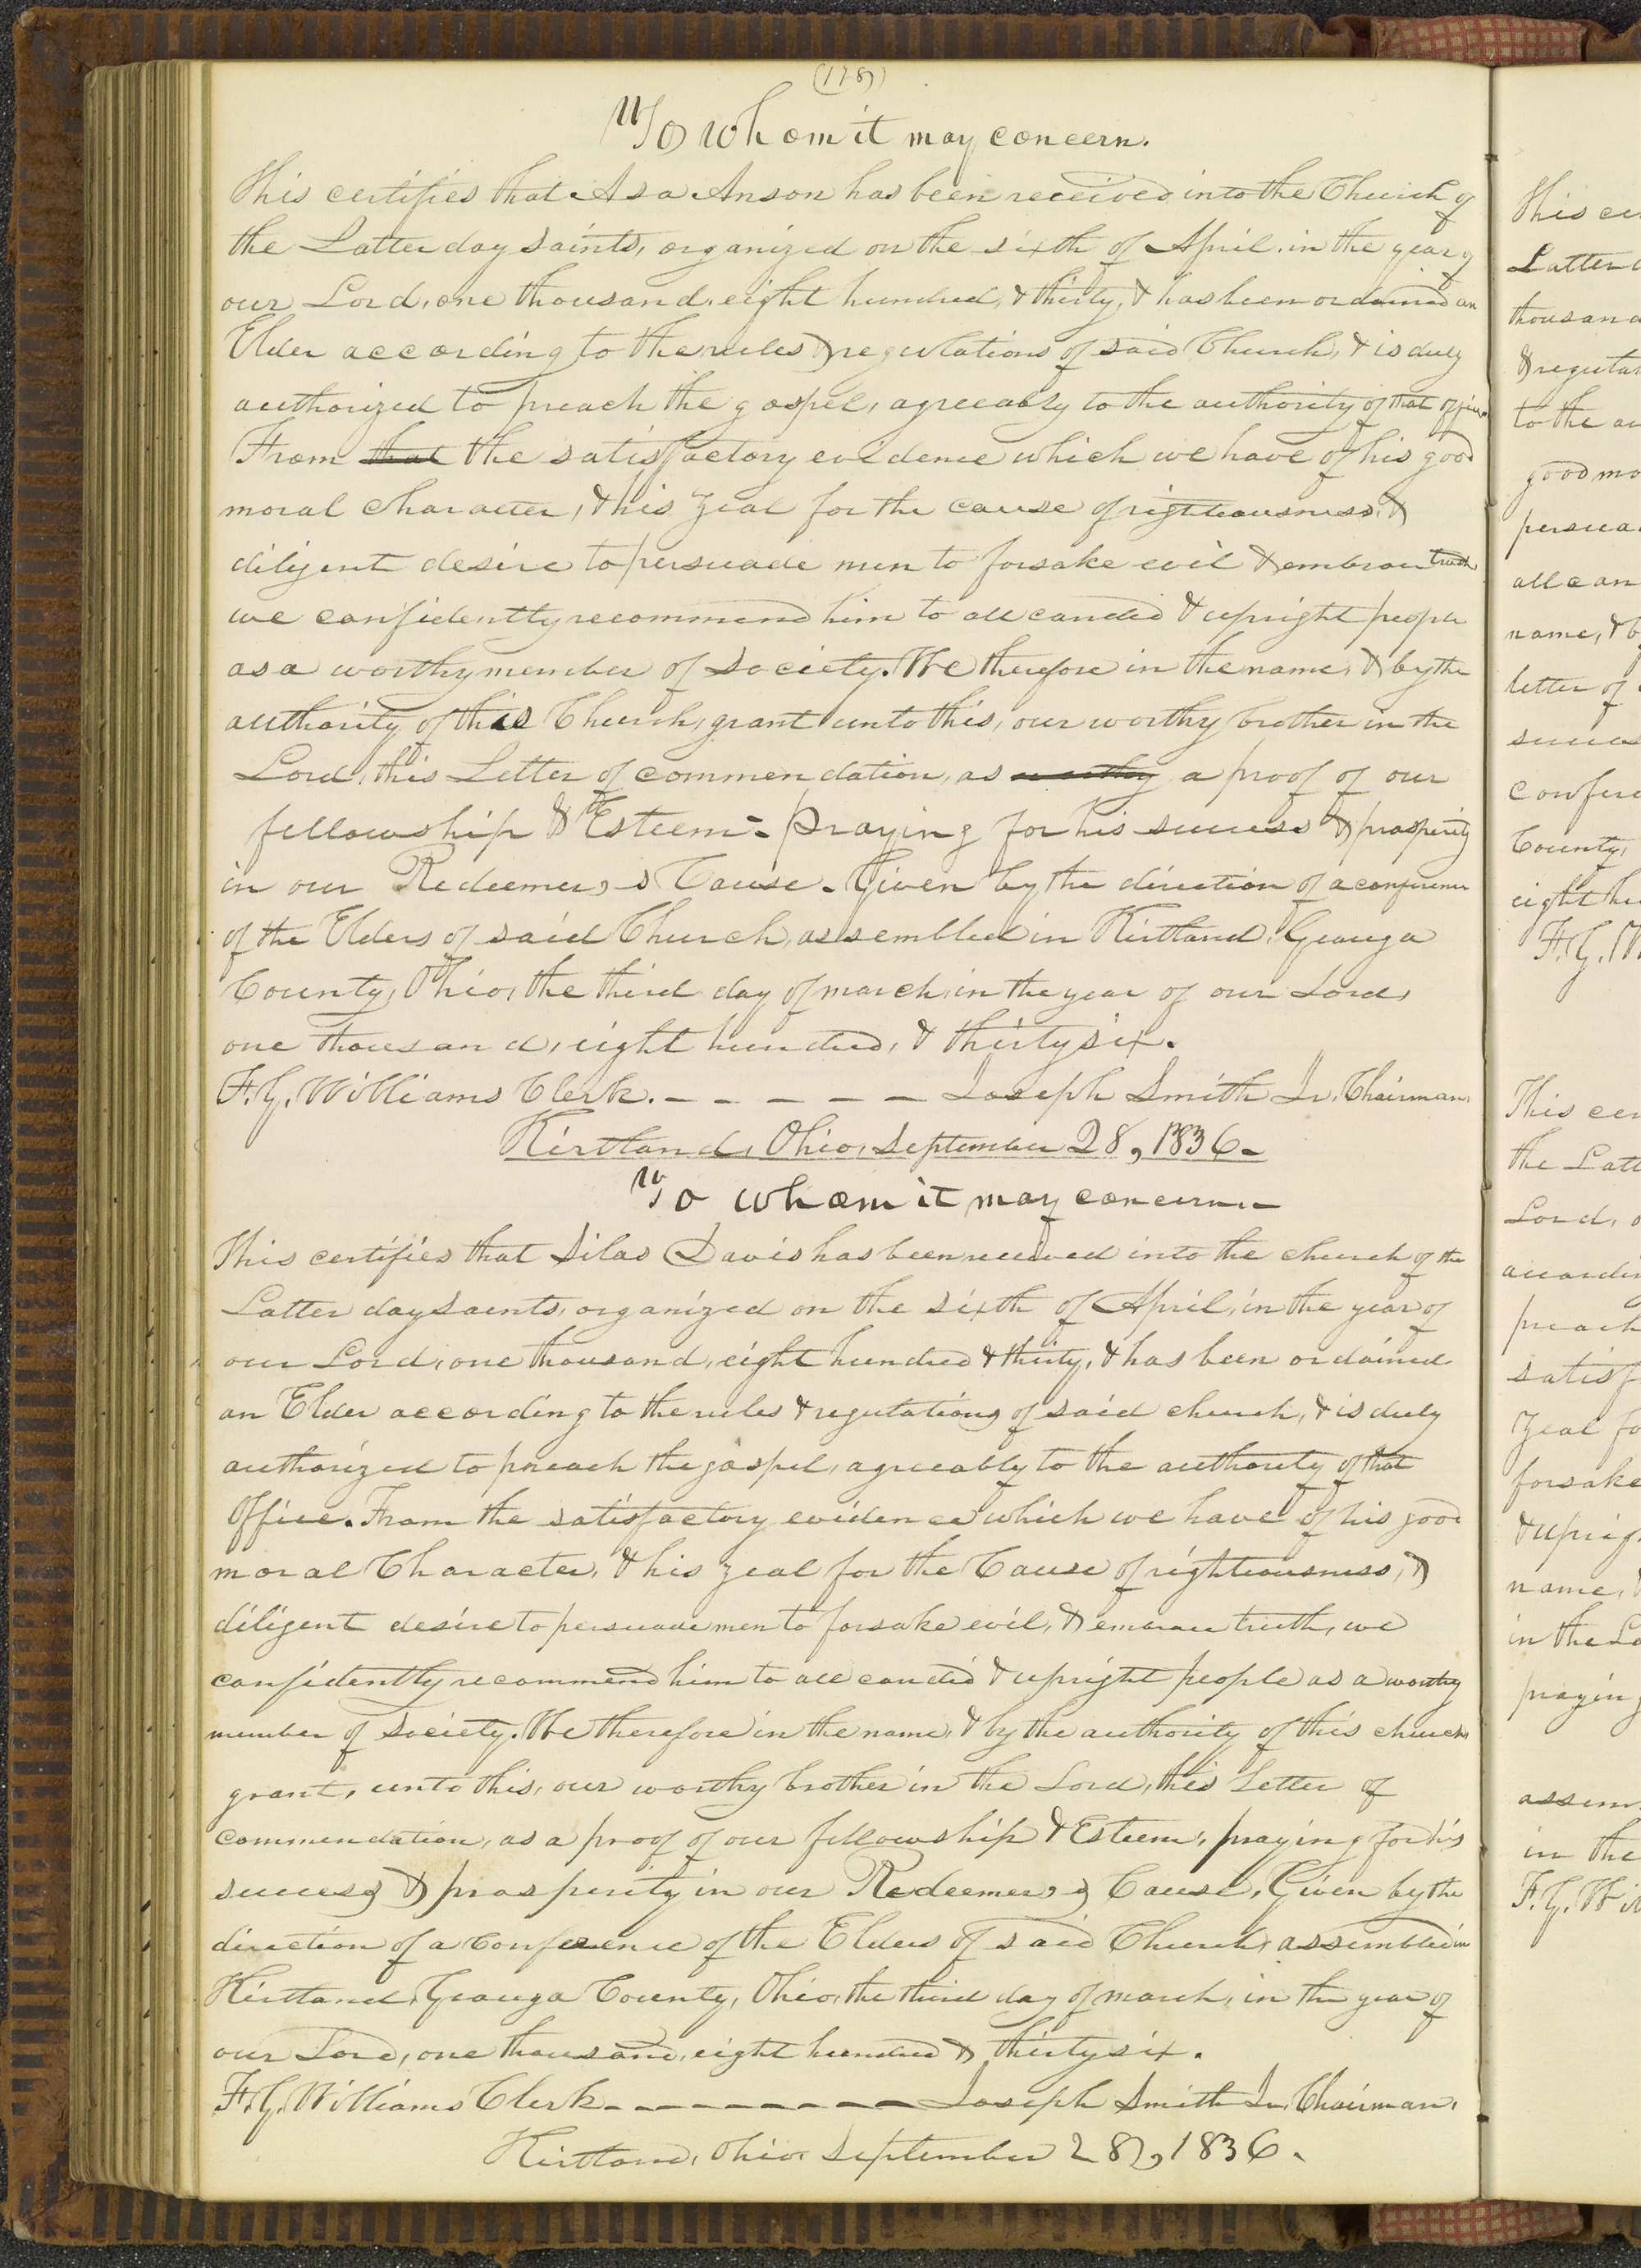 (178)
To whom it may concern.
This certifies that Asa Anson has been received into the Church of
the Latter day saints, organized on the sixth of April, in the year of
our Lord, one thousand, eight hundred, & thirty, & has been ordained an
Elder according to the rules & regulations of said Church, & is duly
authorized to preach the gospel, agreeably to the authority of that office.
From that the satisfactory evidence which we have of his good
moral character, & his zeal for the cause of righteousness, &
diligent desire to persuade men to forsake evil & embrace truth
we confidently recommend him to all candid & upright people
as a worthy member of society. We therefore in the name, & by the
authority of this Church, grant unto this, our worthy brother in the
Lord, this Letter of commendation, as worthy a proof of our
fellowship & Esteem - praying for his success & prosperity
in our Redeemer,s Cause. Given by the direction of a conference
of the Elders of said Church, assembled in Kirtland, Geauga
County, Ohio, the third day of march, in the year of our Lord,
one thousand, eight hundred, & thirty six.
F. G. Williams Clerk. – – – – – – Joseph Smith Jr. Chairman,
Kirtland, Ohio, September 28, 1836.
To whom it may concern.
This certifies that Silas Davis has been received into the church of the
Latter day saints, organized on the sixth of April, in the year of
our Lord, one thousand, eight hundred & thirty, & has been ordained
an Elder according to the rules & regulations of said church, & is duly
authorized to preach the gospel, agreeably to the authority of that
Office. From the satisfactory evidence which we have of his good
moral Character, & his zeal for the Cause of righteousness, &
diligent desire to persuade men to forsake evil, & embrace truth, we
confidently recommend him to all candid & upright people as a worthy
member of society. We therefore in the name, & by the authority of this church
grant, unto this, our worthy brother in the Lord, this Letter of
commendation, as a proof of our fellowship & Esteem, praying for his
success & prosperity in our Redeemer,s Cause, Given by the
direction of a Conference of the Elders of said Church, assembled in
Kirtland, Geauga County, Ohio, the third day of march, in the year of
our Lord, one thousand, eight hundred & thirty six.
F. G. Williams Clerk – – – – – – – – Joseph Smith Jr. Chairman.
Kirtland, Ohio, September 28, 1836.
This cer
Latter
thousand
& regula
to the au
good mo
persua
all can
name, & b
letter of
succes
Confere
County,
eight hu
F. G. W
This cer
the Latt
Lord, o
accordin
preach
satisf
zeal fo
forsake
& uprig
name, &
in the Lo
praying
assem
in the
F. G. Wil